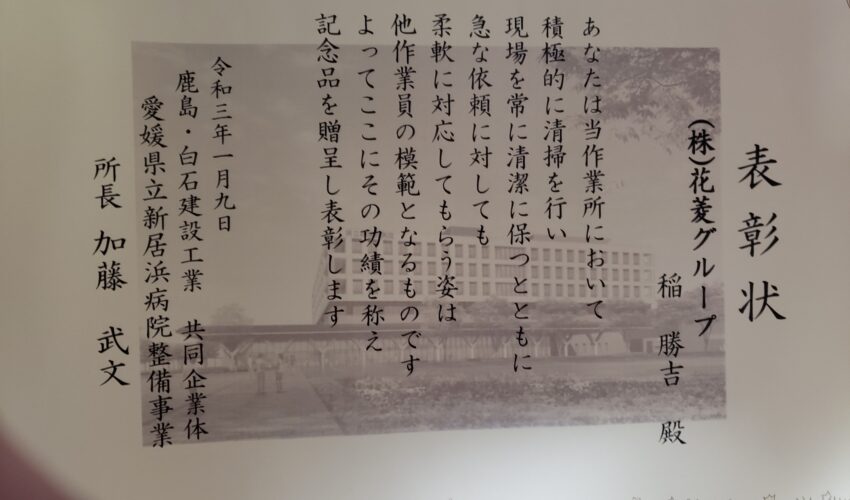 表彰状
(株)花菱グループ
稲 勝吉 殿
あなたは当作業所において
積極的に清掃を行い
現場を常に清潔に保つとともに
急な依頼に対しても
柔軟に対応してもらう姿は
他作業員の模範となるものです
よってここにその功績を称え
記念品を贈呈し表彰します
令和三年一月九日
鹿島・白石建設工業 共同企業体
愛媛県立新居浜病院整備事業
所長 加藤 武文